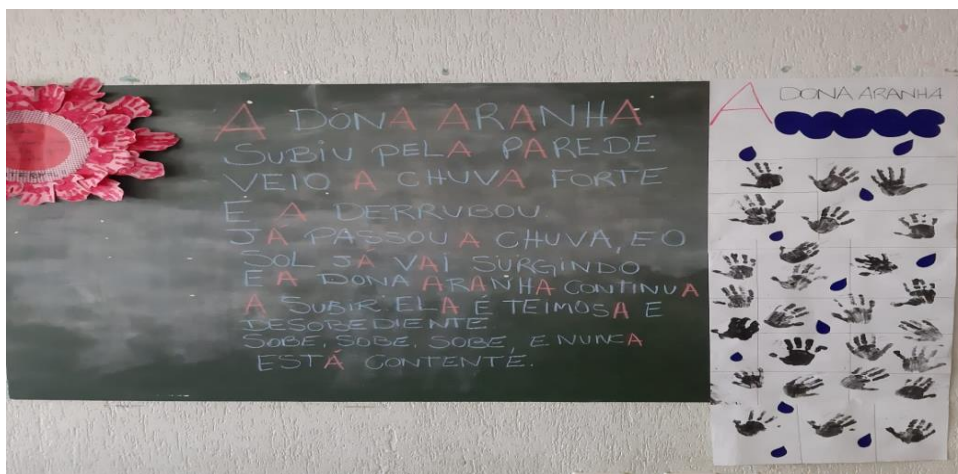 A DONA ARANHA
SUBIU PELA PAREDE
VEIO A CHUVA FORTE
E A DERRUBOU
JÁ PASSOU A CHUVA, E O
SOL JÁ VAI SURGINDO
E A DONA ARANHA CONTINUA
A SUBIR ELA É TEIMOSA E
DESOBEDIENTE
SOBE, SOBE, SOBE, E NUNCA
ESTÁ CONTENTE.
A DONA ARANHA